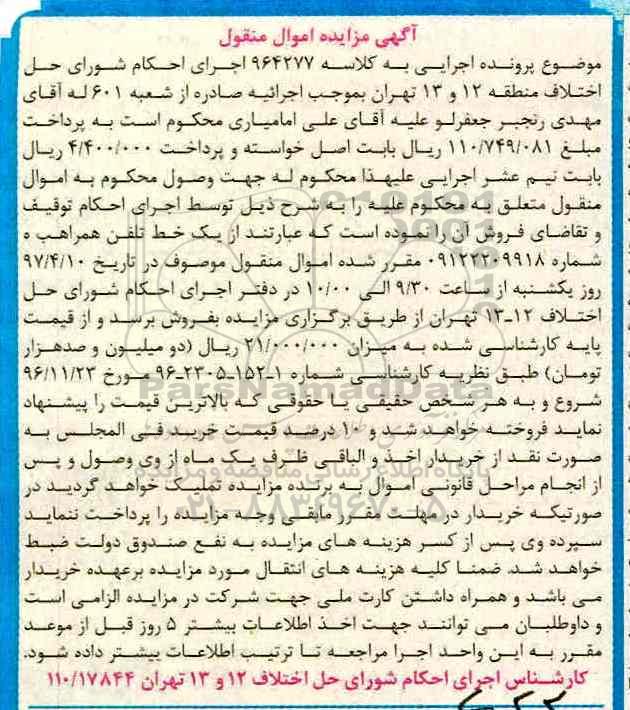 آگهی مزایده اموال منقول
موضوع پرونده اجرایی به کلاسه ۹۶۴۲۷۷ اجرای احکام شورای حل
اختلاف منطقه ۱۲ و ۱۳ تهران بموجب اجرائیه صادره از شعبه ۶۰۱ له آقای
مهدی رنجبر جعفرلو علیه آقای علی امامیاری محکوم است به پرداخت
مبلغ ۱۱۰/۷۴۹/۰۸۱ ریال بابت اصل خواسته و پرداخت ۴/۴۰۰/۰۰۰ ریال
بابت نیم عشر اجرایی علیهذا محکوم له جهت وصول محکوم به اموال
منقول متعلق به محکوم علیه را به شرح ذیل توسط اجرای احکام توقیف
و تقاضای فروش آن را نموده است که عبارتند از یک خط تلفن همراهب ه
شماره ۰۹۱۲۲۲۰۹۹۱۸ مقرر شده اموال منقول موصوف در تاریخ ۹۷/۴/۱۰
روز یکشنبه از ساعت ۹/۳۰ الی ۱۰/۰۰ در دفتر اجرای احکام شورای حل
اختلاف ۱۲-۱۳ تهران از طریق برگزاری مزایده بفروش برسد و از قیمت
پایه کارشناسی شده به میزان ۲۱/۰۰۰/۰۰۰ ریال (دو میلیون و صدهزار
تومان) طبق نظریه کارشناسی شماره ۱-۱۵۲-۲۳۰۵-۹۶ مورخ ۹۶/۱۱/۲۳
شروع و به هر شخص حقیقی یا حقوقی که بالاترین قیمت را پیشنهاد
نماید فروخته خواهد شد و ۱۰ درصد قیمت خرید فی المجلس به
صورت نقد از خریدار اخذ و الباقی ظرف یک ماه از وی وصول و پس
از انجام مراحل قانونی اموال به برنده مزایده تملیک خواهد گردید در
صورتیکه خریدار در مهلت مقرر مابقی وجه مزایده را پرداخت ننماید
سپرده وی پس از کسر هزینه های مزایده به نفع صندوق دولت ضبط
خواهد شد. ضمنا کلیه هزینه های انتقال مورد مزایده برعهده خریدار
می باشد و همراه داشتن کارت ملی جهت شرکت در مزایده الزامی است
و داوطلبان می توانند جهت اخذ اطلاعات بیشتر ۵ روز قبل از موعد
مقرر به این واحد اجرا مراجعه تا ترتیب اطلاعات بیشتر داده شود.
کارشناس اجرای احکام شورای حل اختلاف ۱۲ و ۱۳ تهران ۱۱۰/۱۷۸۴۴
ParsNamadData
پایگاه اطلاع رسانی مناقصه و مزایده
۰۲۱-۸۸۳۴۹۶۷۰-۵